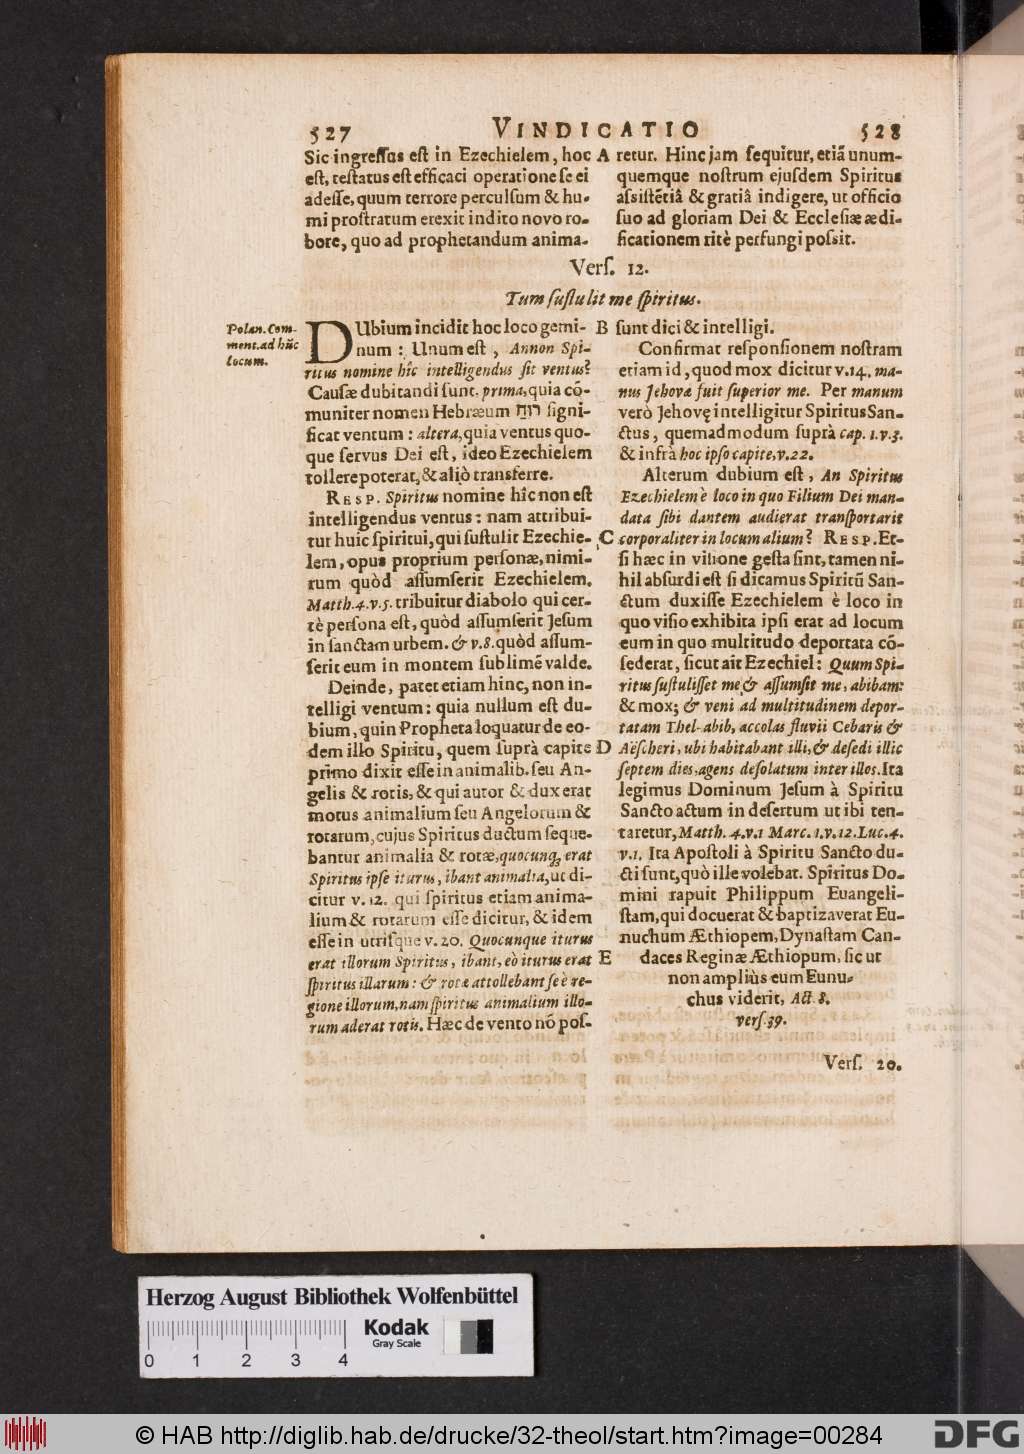 527
VINDICATIO
528
Sic ingreſſus eſt in Ezechielem, hoc
eſt, teſtatus eſt efficaci operatione ſe ei
adeſſe, quum terrore perculſum & hu-
mi proſtratum erexit indito novo ro-
bore, quo ad prophetandum anima-
A
retur. Hinc jam ſequitur, etiã unum-
quemque noſtrum ejuſdem Spiritus
aſsiſtẽtiâ & gratiâ indigere, ut officio
ſuo ad gloriam Dei & Eccleſiæ ædi-
ficationem ritè perfungi poſsit.
Verſ. 12.
Tum ſuſtulit me ſpiritus.
Polan. Com-
ment. ad hũc
locum.
DUbium incidit hoc loco gemi-
num: Unum eſt, Annon Spi-
ritus nomine hîc intelligendus ſit ventus?
Cauſæ dubitandi ſunt, prima, quia cõ-
muniter nomen Hebræum רוח ſigni-
ficat ventum: altera, quia ventus quo-
que ſervus Dei eſt, ideo Ezechielem
tollere poterat, & aliò transferre.
RESP. Spiritus nomine hîc non eſt
intelligendus ventus: nam attribui-
tur huic ſpiritui, qui ſuſtulit Ezechie-
lem, opus proprium perſonæ, nimi-
rum quòd aſſumſerit Ezechielem.
Matth. 4. v. 5. tribuitur diabolo qui cer-
tè perſona eſt, quòd aſſumſerit Jeſum
in ſanctam urbem. & v. 8. quòd aſſum-
ſerit eum in montem ſublimẽ valde.
Deinde, patet etiam hinc, non in-
telligi ventum: quia nullum eſt du-
bium, quin Propheta loquatur de eo-
dem illo Spiritu, quem ſuprà capite
primo dixit eſſe in animalib. ſeu An-
gelis & rotis, & qui autor & dux erat
motus animalium ſeu Angelorum &
rotarum, cujus Spiritus ductum ſeque-
bantur animalia & rotæ, quocunq; erat
Spiritus ipſe iturus, ibant animalia, ut di-
citur v. 12. qui ſpiritus etiam anima-
lium & rotarum eſſe dicitur, & idem
eſſe in utriſque v. 20. Quocunque iturus
erat illorum Spiritus, ibant, eò iturus erat
ſpiritus illarum: & rotæ attollebant ſe è re-
gione illorum, nam ſpiritus animalium illo-
rum aderat rotis. Hæc de vento nõ poſ-
B
C
D
E
ſunt dici & intelligi.
Confirmat reſponſionem noſtram
etiam id, quod mox dicitur v. 14. ma-
nus Jehovæ fuit ſuperior me. Per manum
verò Jehovę intelligitur Spiritus San-
ctus, quemadmodum ſuprà cap. 1. v. 3.
& infrà hoc ipſo capite, v. 22.
Alterum dubium eſt, An Spiritus
Ezechielem è loco in quo Filium Dei man-
data ſibi dantem audierat tranſportarit
corporaliter in locum alium? RESP. Et-
ſi hæc in viſione geſta ſint, tamen ni-
hil abſurdi eſt ſi dicamus Spiritũ San-
ctum duxiſſe Ezechielem è loco in
quo viſio exhibita ipſi erat ad locum
eum in quo multitudo deportata cõ-
ſederat, ſicut ait Ezechiel: Quum Spi-
ritus ſuſtuliſſet me & aſſumſit me, abibam:
& mox; & veni ad multitudinem depor-
tatam Thel-abib, accolas fluvii Cebaris &
Aëſcheri, ubi habitabant illi, & deſedi illic
ſeptem dies, agens deſolatum inter illos. Ita
legimus Dominum Jeſum à Spiritu
Sancto actum in deſertum ut ibi ten-
taretur, Matth. 4. v. 1 Marc. 1. v. 12. Luc. 4.
v. 1. Ita Apoſtoli à Spiritu Sancto du-
cti ſunt, quò ille volebat. Spiritus Do-
mini rapuit Philippum Euangeli-
ſtam, qui docuerat & baptizaverat Eu-
nuchum Æthiopem, Dynaſtam Can-
daces Reginæ Æthiopum, ſic ut
non ampliùs eum Eunu-
chus viderit, Act. 8.
verſ. 39.
Verſ. 20.
Herzog August Bibliothek Wolfenbüttel
0 1 2 3 4
Kodak
Gray Scale
© HAB http://diglib.hab.de/drucke/32-theol/start.htm?image=00284
DFG